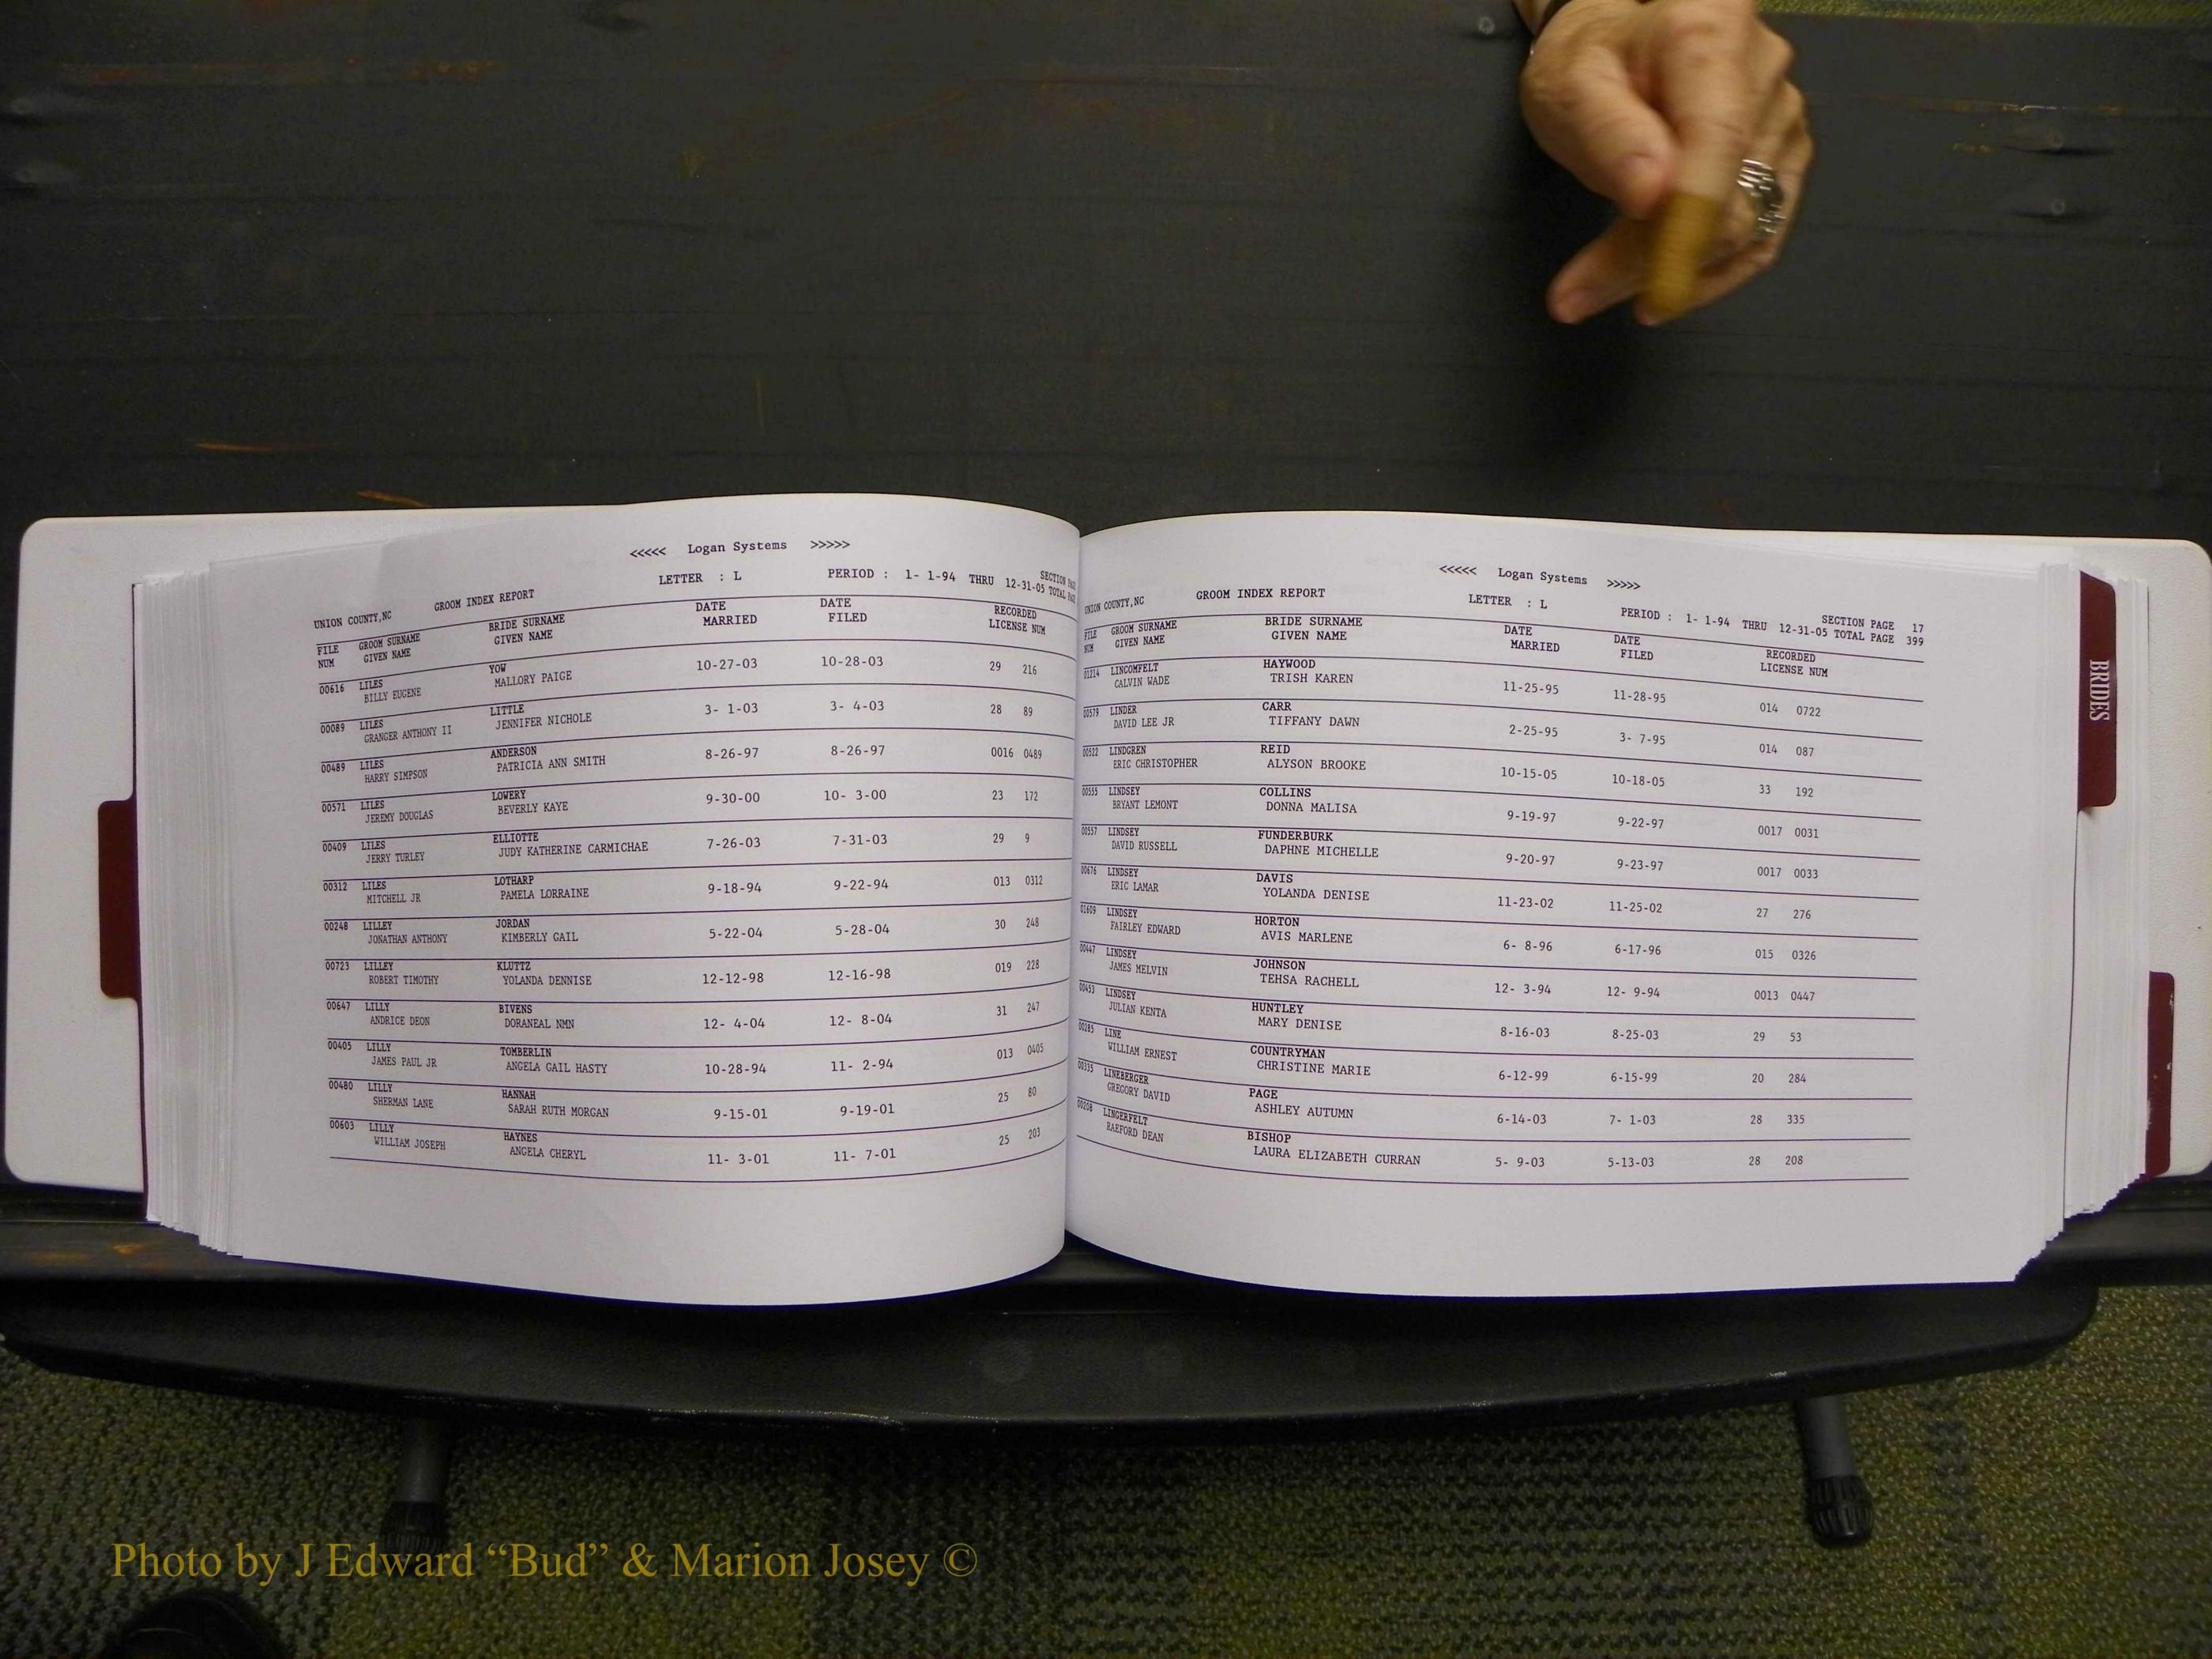 <<<<< Logan Systems >>>>>
UNION COUNTY,NC GROOM INDEX REPORT LETTER : L PERIOD : 1- 1-94 THRU 12-31-05 SECTION TOTAL
FILE GROOM SURNAME BRIDE SURNAME DATE DATE RECORDED
NUM GIVEN NAME GIVEN NAME MARRIED FILED LICENSE NUM
00616 LILES YOW 10-27-03 10-28-03 29 216
BILLY EUGENE MALLORY PAIGE
00089 LILES LITTLE 3- 1-03 3- 4-03 28 89
GRANGER ANTHONY II JENNIFER NICHOLE
00489 LILES ANDERSON 8-26-97 8-26-97 0016 0489
HARRY SIMPSON PATRICIA ANN SMITH
00571 LILES LOWERY 9-30-00 10- 3-00 23 172
JEREMY DOUGLAS BEVERLY KAYE
00409 LILES ELLIOTTE 7-26-03 7-31-03 29 9
JERRY TURLEY JUDY KATHERINE CARMICHAE
00312 LILES LOTHARP 9-18-94 9-22-94 013 0312
MITCHELL JR PAMELA LORRAINE
00248 LILLEY JORDAN 5-22-04 5-28-04 30 248
JONATHAN ANTHONY KIMBERLY GAIL
00723 LILLEY KLUTTZ 12-12-98 12-16-98 019 228
ROBERT TIMOTHY YOLANDA DENNISE
00647 LILLY BIVENS 12- 4-04 12- 8-04 31 247
ANDRICE DEON DORANEAL NMN
00405 LILLY TOMBERLIN 10-28-94 11- 2-94 013 0405
JAMES PAUL JR ANGELA GAIL HASTY
00480 LILLY HANNAH 9-15-01 9-19-01 25 80
SHERMAN LANE SARAH RUTH MORGAN
00603 LILLY HAYNES 11- 3-01 11- 7-01 25 203
WILLIAM JOSEPH ANGELA CHERYL
<<<<< Logan Systems >>>>>
UNION COUNTY,NC GROOM INDEX REPORT LETTER : L PERIOD : 1- 1-94 THRU 12-31-05 SECTION PAGE 17
TOTAL PAGE 399
FILE GROOM SURNAME BRIDE SURNAME DATE DATE RECORDED
NUM GIVEN NAME GIVEN NAME MARRIED FILED LICENSE NUM
01214 LINCOMFELT HAYWOOD 11-25-95 11-28-95 014 0722
CALVIN WADE TRISH KAREN
00579 LINDER CARR 2-25-95 3- 7-95 014 087
DAVID LEE JR TIFFANY DAWN
00522 LINDGREN REID 10-15-05 10-18-05 33 192
ERIC CHRISTOPHER ALYSON BROOKE
00555 LINDSEY COLLINS 9-19-97 9-22-97 0017 0031
BRYANT LEMONT DONNA MALISA
00557 LINDSEY FUNDERBURK 9-20-97 9-23-97 0017 0033
DAVID RUSSELL DAPHNE MICHELLE
00676 LINDSEY DAVIS 11-23-02 11-25-02 27 276
ERIC LAMAR YOLANDA DENISE
01609 LINDSEY HORTON 6- 8-96 6-17-96 015 0326
FAIRLEY EDWARD AVIS MARLENE
00447 LINDSEY JOHNSON 12- 3-94 12- 9-94 0013 0447
JAMES MELVIN TEHSA RACHELL
00453 LINDSEY HUNTLEY 8-16-03 8-25-03 29 53
JULIAN KENTA MARY DENISE
00285 LINE COUNTRYMAN 6-12-99 6-15-99 20 284
WILLIAM ERNEST CHRISTINE MARIE
00335 LINEBERGER PAGE 6-14-03 7- 1-03 28 335
GREGORY DAVID ASHLEY AUTUMN
00208 LINGERFELT BISHOP 5- 9-03 5-13-03 28 208
RAEFORD DEAN LAURA ELIZABETH CURRAN
BRIDES
Photo by J Edward “Bud” & Marion Josey ©